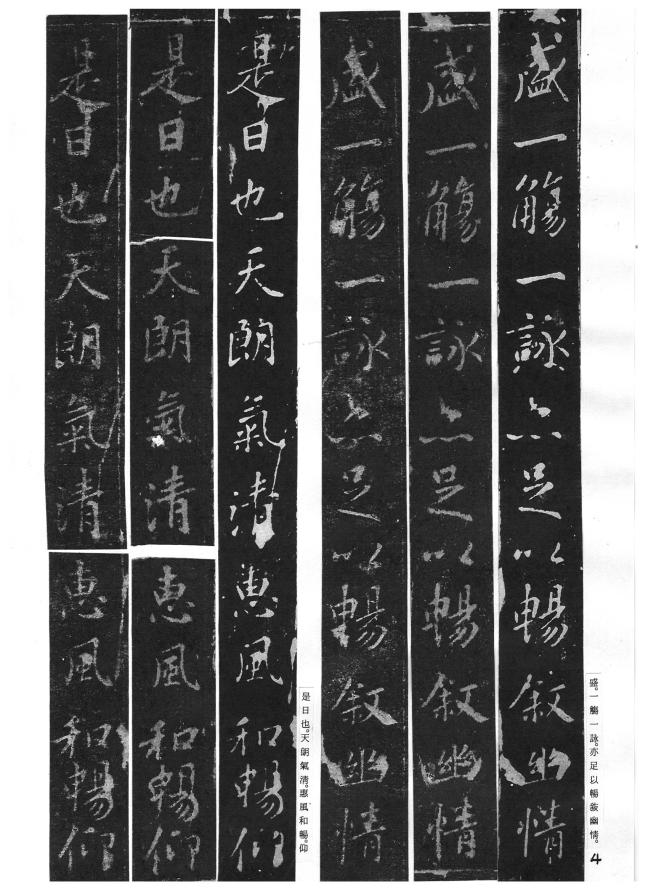 盛一觴一詠亦足以暢敘幽情
盛一觴一詠亦足以暢敘幽情
盛一觴一詠亦足以暢敘幽情
盛。一觴一詠。亦足以暢敘幽情。
4
是日也天朗氣清惠風和暢仰
是日也天朗氣清惠風和暢仰
是日也天朗氣清惠風和暢仰
是日也。天朗氣清。惠風和暢。仰